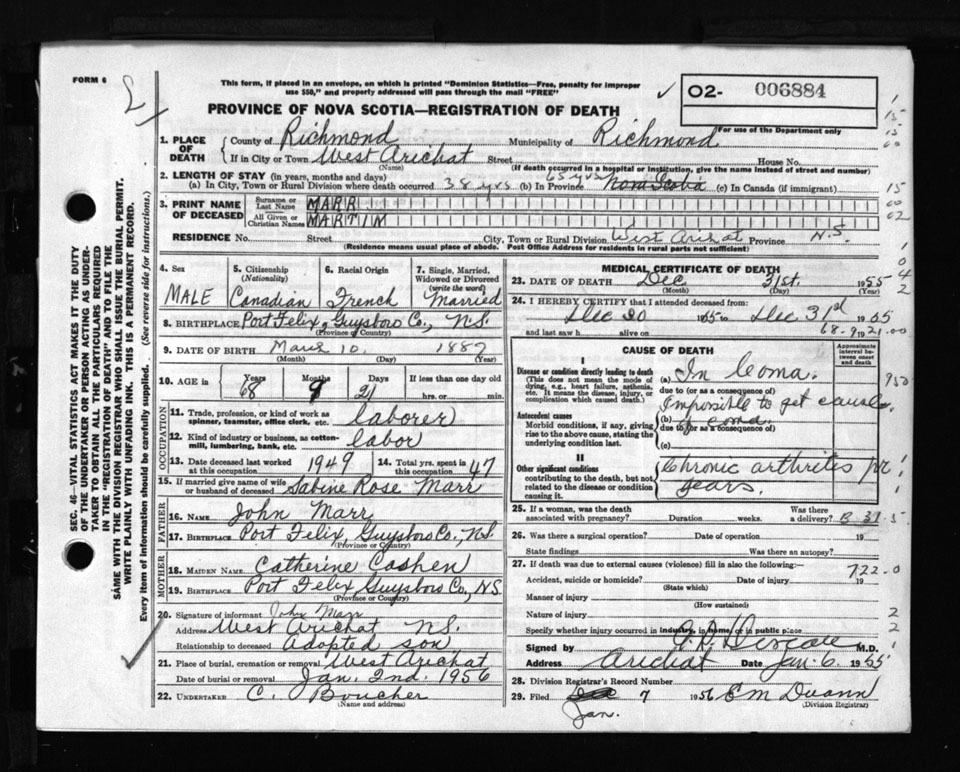 FORM 6
This form, if placed in an envelope, on which is printed "Dominion Statistics—Free, penalty for improper
use $50," and property addressed will pass through the mail "FREE"
O2- 006884
For use of the Department only
PROVINCE OF NOVA SCOTIA—REGISTRATION OF DEATH
1. PLACE OF DEATH
County of Richmond Municipality of Richmond
If in City or Town West Arichat Street House No.
(Name) (If death occurred in a hospital or institution, give the name instead of street and number)
2. LENGTH OF STAY (in years, months and days)
(a) In City, Town or Rural Division where death occurred 38 yrs (b) In Province 65 yrs Nova Scotia (c) In Canada (if immigrant)
3. PRINT NAME OF DECEASED
Surname or Last Name MARR
All Given or Christian Names MARTIN
RESIDENCE No. Street City, Town or Rural Division West Arichat Province N.S.
(Residence means usual place of abode. Post Office Address for residents in rural parts not sufficient)
4. Sex MALE
5. Citizenship (Nationality) Canadian
6. Racial Origin French
7. Single, Married, Widowed or Divorced (write the word) Married
8. BIRTHPLACE Port Felix, Guysboro Co., N.S.
(Province or Country)
9. DATE OF BIRTH March 10, 1887
(Month) (Day) (Year)
10. AGE in Years Months Days If less than one day old
68 9 21 hrs. or min.
OCCUPATION
11. Trade, profession, or kind of work as spinner, teamster, office clerk, etc. laborer
12. Kind of industry or business, as cotton-mill, lumbering, bank, etc. labor
13. Date deceased last worked at this occupation 1949
14. Total yrs. spent in this occupation 47
15. If married give name of wife or husband of deceased Sabine Rose Marr
FATHER
16. NAME John Marr
17. BIRTHPLACE Port Felix, Guysboro Co., N.S.
(Province or Country)
MOTHER
18. MAIDEN NAME Catherine Cashen
19. BIRTHPLACE Port Felix Guysboro Co., N.S.
(Province or Country)
20. Signature of informant John Marr
Address West Arichat N.S.
Relationship to deceased adopted son
21. Place of burial, cremation or removal West Arichat
Date of burial or removal Jan. 2nd. 1956
22. UNDERTAKER C. Boucher
(Name and address)
MEDICAL CERTIFICATE OF DEATH
23. DATE OF DEATH Dec 31st. 1955
(Month) (Day) (Year)
24. I HEREBY CERTIFY that I attended deceased from:
Dec 20 1955 to Dec 31st 1955
and last saw h alive on 19
68-9-21.00
CAUSE OF DEATH
Approximate interval between onset and death
I
Disease or condition directly leading to death
(This does not mean the mode of dying, e.g., heart failure, asthenia, etc. It means the disease, injury, or complication which caused death.)
(a) In Coma.
due to (or as a consequence of)
Impossible to get cause
(b) of coma.
Antecedent causes
Morbid conditions, if any, giving rise to the above cause, stating the underlying condition last.
due to (or as a consequence of)
(c)
II
Other significant conditions
contributing to the death, but not related to the disease or condition causing it.
Chronic arthrites for
years.
25. If a woman, was the death associated with pregnancy? Duration weeks. Was there a delivery? B 31.5
26. Was there a surgical operation? Date of operation 19
State findings Was there an autopsy?
27. If death was due to external causes (violence) fill in also the following:—
Accident, suicide or homicide? Date of injury 19
(State which)
722.0
Manner of injury
(How sustained)
Nature of injury
Specify whether injury occurred in industry, in home, or in public place
Signed by M.D.
Address Arichat Date Jan. 6 1955
28. Division Registrar's Record Number
29. Filed Jan. 7 1956
(Division Registrar)
SEC. 46—VITAL STATISTICS MAKES IT THE DUTY
OF THE UNDERTAKER OR PERSON ACTING AS UNDER-
TAKER TO OBTAIN ALL THE PARTICULARS REQUIRED
IN THE "REGISTRATION OF DEATH" AND TO FILE THE
SAME WITH THE DIVISION REGISTRAR WHO SHALL ISSUE THE BURIAL PERMIT.
WRITE PLAINLY WITH UNFADING INK. THIS IS A PERMANENT RECORD.
Every item of information should be carefully supplied. (See reverse side for instructions.)